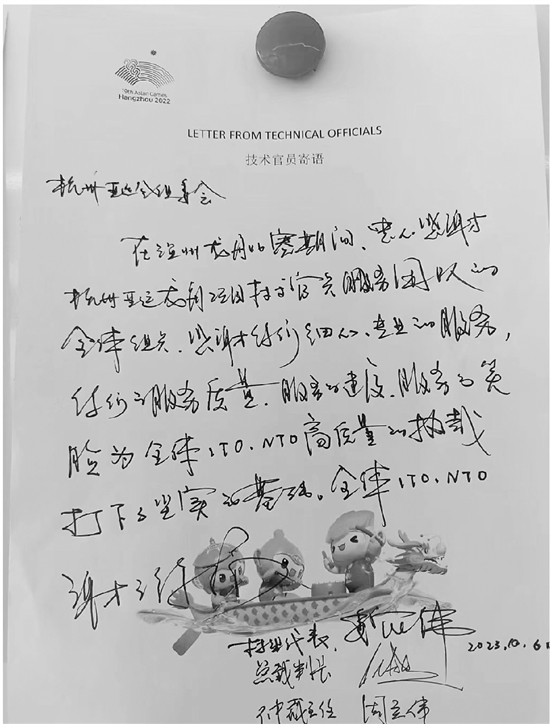 19th Asian Games
Hangzhou 2022
LETTER FROM TECHNICAL OFFICIALS
技术官员寄语
杭州亚运会组委会
在温州龙舟比赛期间、衷心感谢
杭州亚运龙舟项目技术官员服务团队的
全体组员、感谢你们细心、专业的服务,
你们的服务质量、服务的速度、服务的笑
脸为全体ITO、NTO高质量的执裁
打下了坚实的基础。全体ITO、NTO
谢谢你们
技术代表
2023.10.6
总裁判长
仲裁主任 周立伟